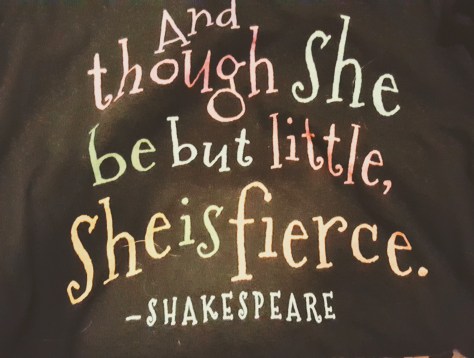 And
though She
be but little,
She is fierce.
-SHAKESPEARE